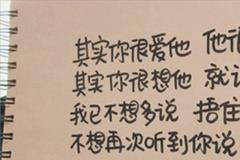 其实你很爱他 他很
其实你很想他 就让
我已不想多说 捂住
不想再次听到你说